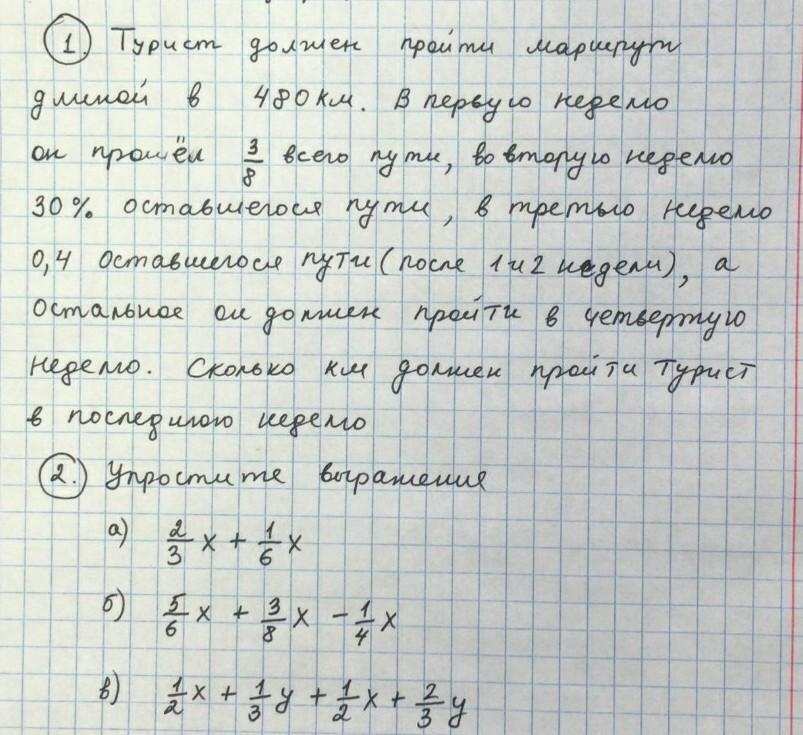 1. Турист должен пройти маршрут
длиной в 480 км. В первую неделю
он прошёл 3/8 всего пути, во вторую неделю
30% оставшегося пути, в третью неделю
0,4 оставшегося пути (после 1 и 2 недели), а
остальное он должен пройти в четвертую
неделю. Сколько км должен пройти турист
в последнюю неделю
2. Упростите выражения
а) 2/3 x + 1/6 x
б) 5/6 x + 3/8 x - 1/4 x
в) 1/2 x + 1/3 y + 1/2 x + 2/3 y